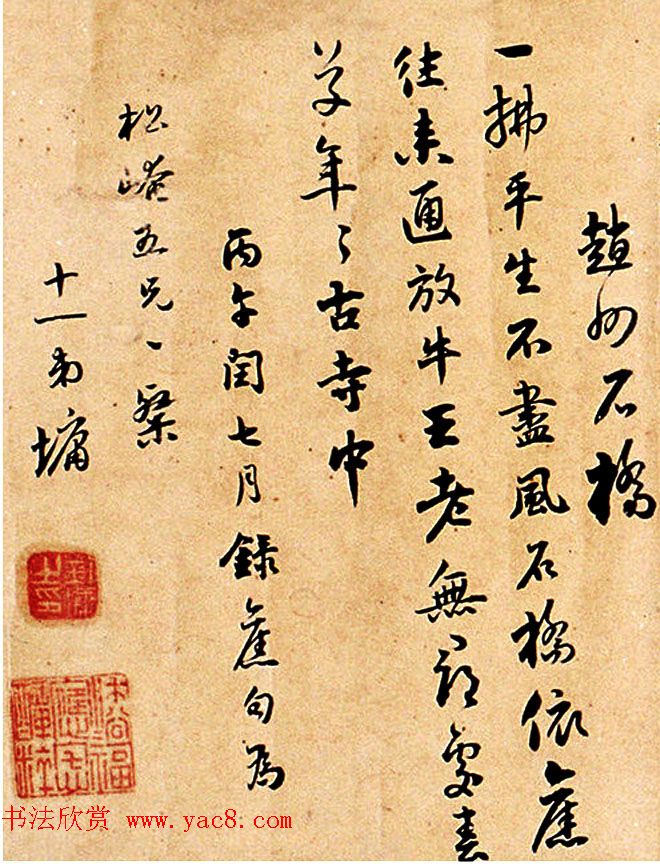 趙州石橋
一拂平生不盡風石橋依舊
往來通放牛王老無處春
草年〻古寺中
丙午閏七月錄舊句為
松崦五兄一粲
十一弟墉
书法欣赏 www.yac8.com